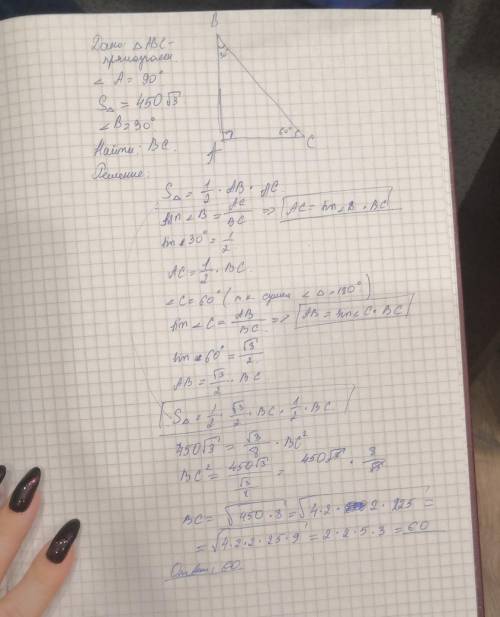 B
Дано: △ABC-
прямоугольн.
∠ A = 90°
S△ = 450√3
∠B = 30°
Найти: BC.
60°
A
C
Решение:
S△ = 1/2 · AB · AC.
sin∠B = AC/BC => AC = sin∠B · BC
sin 30° = 1/2
AC = 1/2 · BC.
∠C = 60° (т.к. сумма ∠ △ = 180°)
sin∠C = AB/BC => AB = sin∠C · BC
sin 60° = √3/2
AB = √3/2 · BC
S△ = 1/2 · √3/2 · BC · 1/2 · BC
450√3 = √3/8 · BC²
BC² = 450√3/(√3/8) = 450√3 · 8/√3
BC = √450·8 = √4·2·2·225 =
= √4·2·2·25·9 = 2·2·5·3 = 60
Ответ: 60